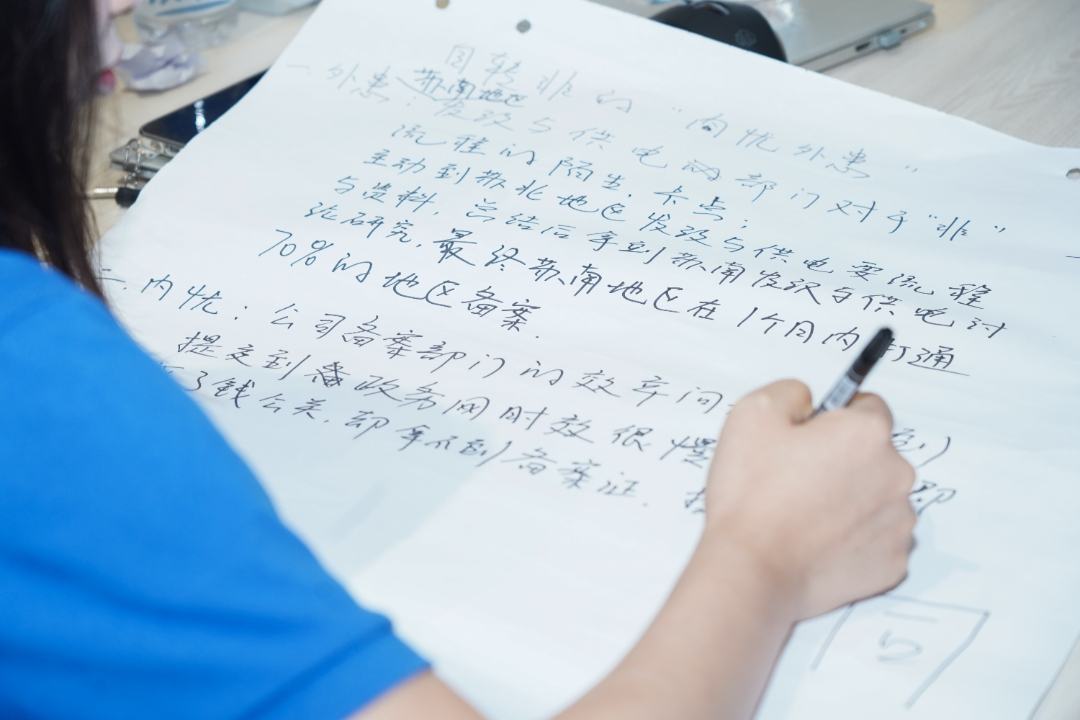 周转非的“内忧外患”
一 外患：苏南地区
发改与供电两部门对于“非”
流程的陌生、卡点；
主动到苏北地区发改与供电要流程
与资料，总结后拿到苏南发改与供电讨
论研究，最终苏南地区在1个月内打通
70%的地区备案.
二 内忧：公司备案部门的效率问
提交到 政务网时效很慢 到)
了钱公关，却拿不到备案证. 即
5